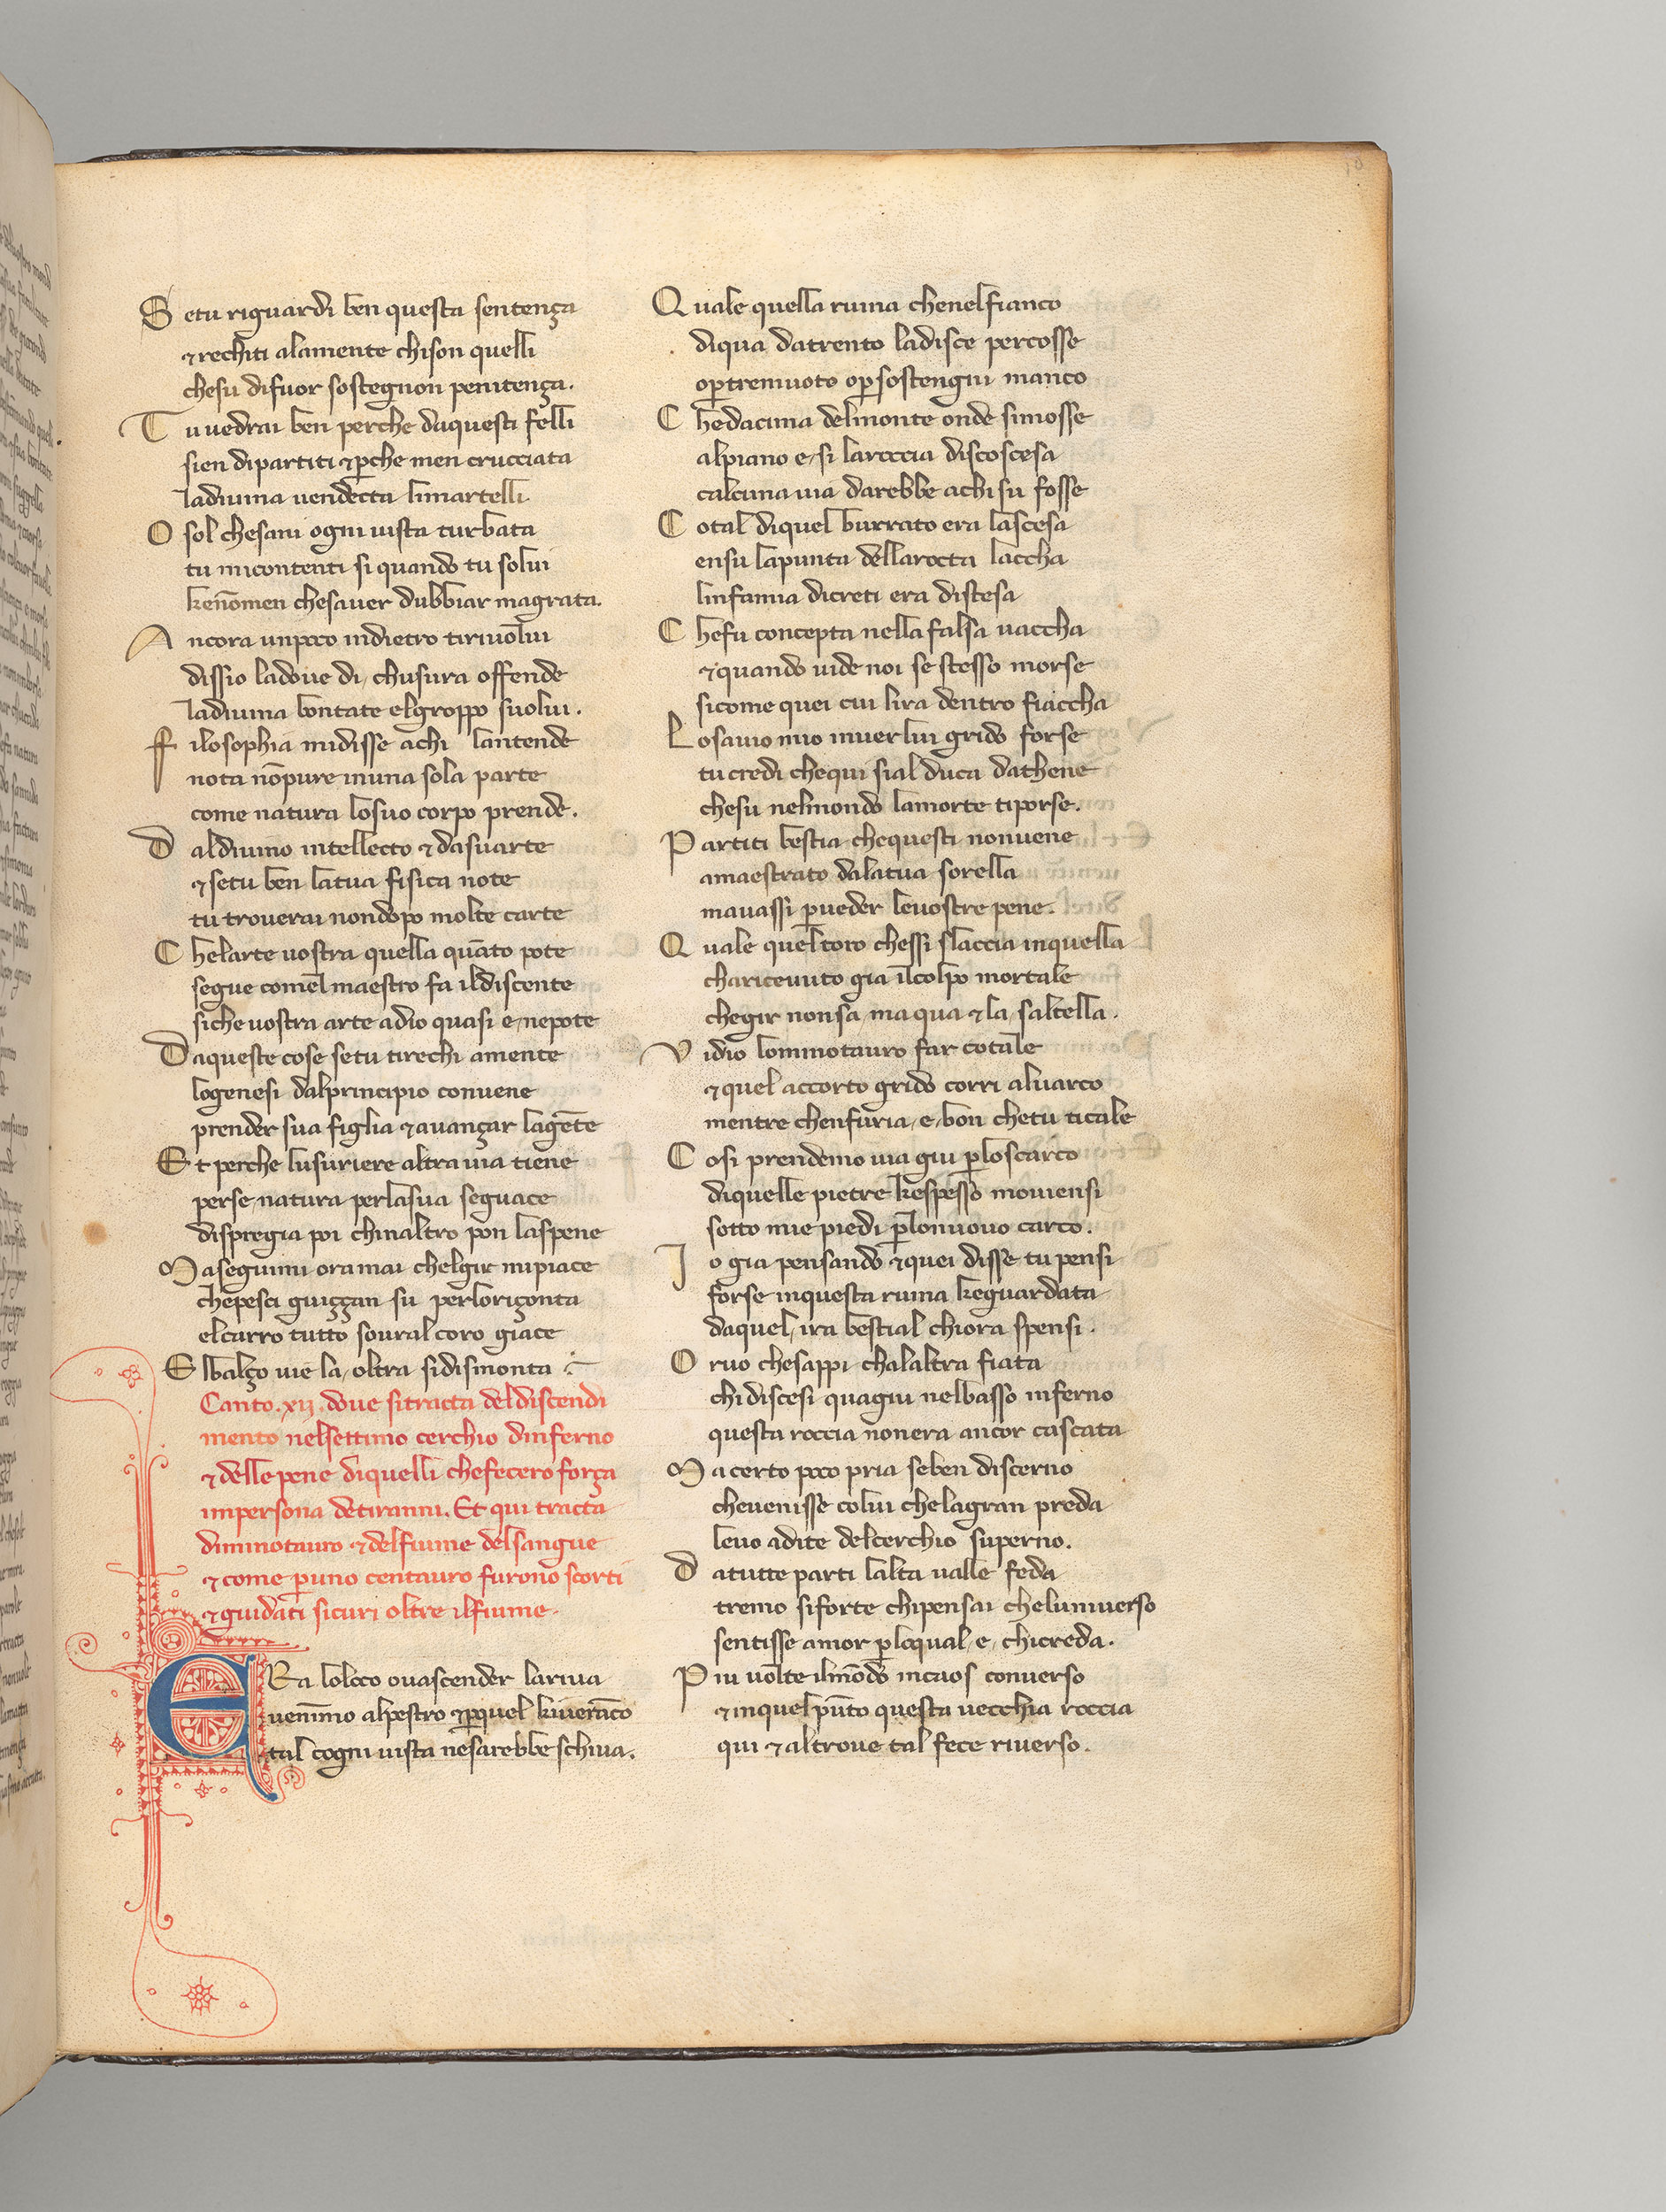 S etu riguardi ben questa sentença
⁊ rechiti alamente chison quelli
chesu difuor sostegnon penitença.
T u uedrai ben perche daquesti felli
sien dipartiti ⁊ ꝑche men crucciata
ladiuina uendecta limartelli.
O sol chesani ogni uista turbata
tu micontenti si quando tu solui
kenōmen chesauer dubbiar magrata.
A ncora unpoco indietro tiriuolui
dissio ladoue di, chusura offende
ladiuina bontate elgroppo suolui.
F ilosophia midisse achi lantende
nota nōpure inuna sola parte
come natura losuo corpo prende.
D aldiuino intellecto ⁊ dasuarte
⁊ setu ben latua fisica note
tu trouerai nondopo molte carte
C helarte uostra quella quāto pote
segue comel maestro fa ildiscente
siche uostra arte adio quasi e, nepote
D aqueste cose setu tirechi amente
logenesi dalprincipio conuene
prender sua figlia ⁊ auançar lagēte
E t perche lusuriere altra uia tiene
perse, natura perlasua seguace
dispregia poi chinaltro pon laspene
M aseguimi oramai chelgir mipiace
chepesci guiççan su perloriçonta
elcarro tutto soural coro giace
E lbalço uie la, oltra sidismonta
Canto .xij. doue sitracta deldiscendi
mento nelsettimo cerchio dinferno
⁊ delle pene diquelli chefecero força
impersona detiranni. Et qui tracta
diminotauro ⁊ delfiume delsangue
⁊ come ꝑuno centauro furono scorti
⁊ guidati sicuri oltre ilfiume.
E Ra loloco ouascender lariua
uenimmo alpestro ⁊ ꝑquel kiuerāco
tal cogni uista nesarebbe schiua.
Q uale quella ruina chenelfianco
diqua datrento ladisce percosse
oꝑtremuoto oꝑsostengni manco
C hedacima delmonte onde simosse
alpiano e, si laroccia discoscesa
calcuna uia darebbe achi su fosse
C otal diquel burrato era lascesa
ensu lapunta dellarocta laccha
linfamia dicreti era distesa
C hefu concepta nella falsa uaccha
⁊ quando uide noi se stesso morse
sicome quei cui lira dentro fiaccha
L osauio mio inuer lui grido forse
tu credi chequi sial duca dathene
chesu nelmondo lamorte tiporse.
P artiti bestia chequesti nonuene
amaestrato dalatua sorella
mauassi ꝑueder leuostre pene.
Q uale quel toro chessi slaccia inquella
chariceuuto gia ilcolpo mortale
chegir nonsa, ma qua ⁊ la, saltella.
V idio lominotauro far cotale
⁊ quel accorto grido corri aluarco
mentre chenfuria, e, bon chetu ticale
C osi prendemo uia giu ꝑloscarco
diquelle pietre kespesso mouiensi
sotto mie piedi ꝑlonuouo carco.
I o gia pensando ⁊ quei disse tu pensi
forse inquesta ruina keguardata
daquel, ira bestial chiora spensi.
O ruo chesappi chalaltra fiata
chi discesi quagiu nelbasso inferno
questa roccia nonera ancor cascata
M a certo poco pria seben discerno
cheuenisse colui chelagran preda
leuo adite delcerchio superno.
D atutte parti lalta ualle feda
tremo siforte chipensai cheluniuerso
sentisse amor ꝑloqual, e, chicreda.
P iu uolte ilmōdo incaos conuerso
⁊ inquel pūto questa uecchia roccia
qui ⁊ altroue tal fece riuerso.